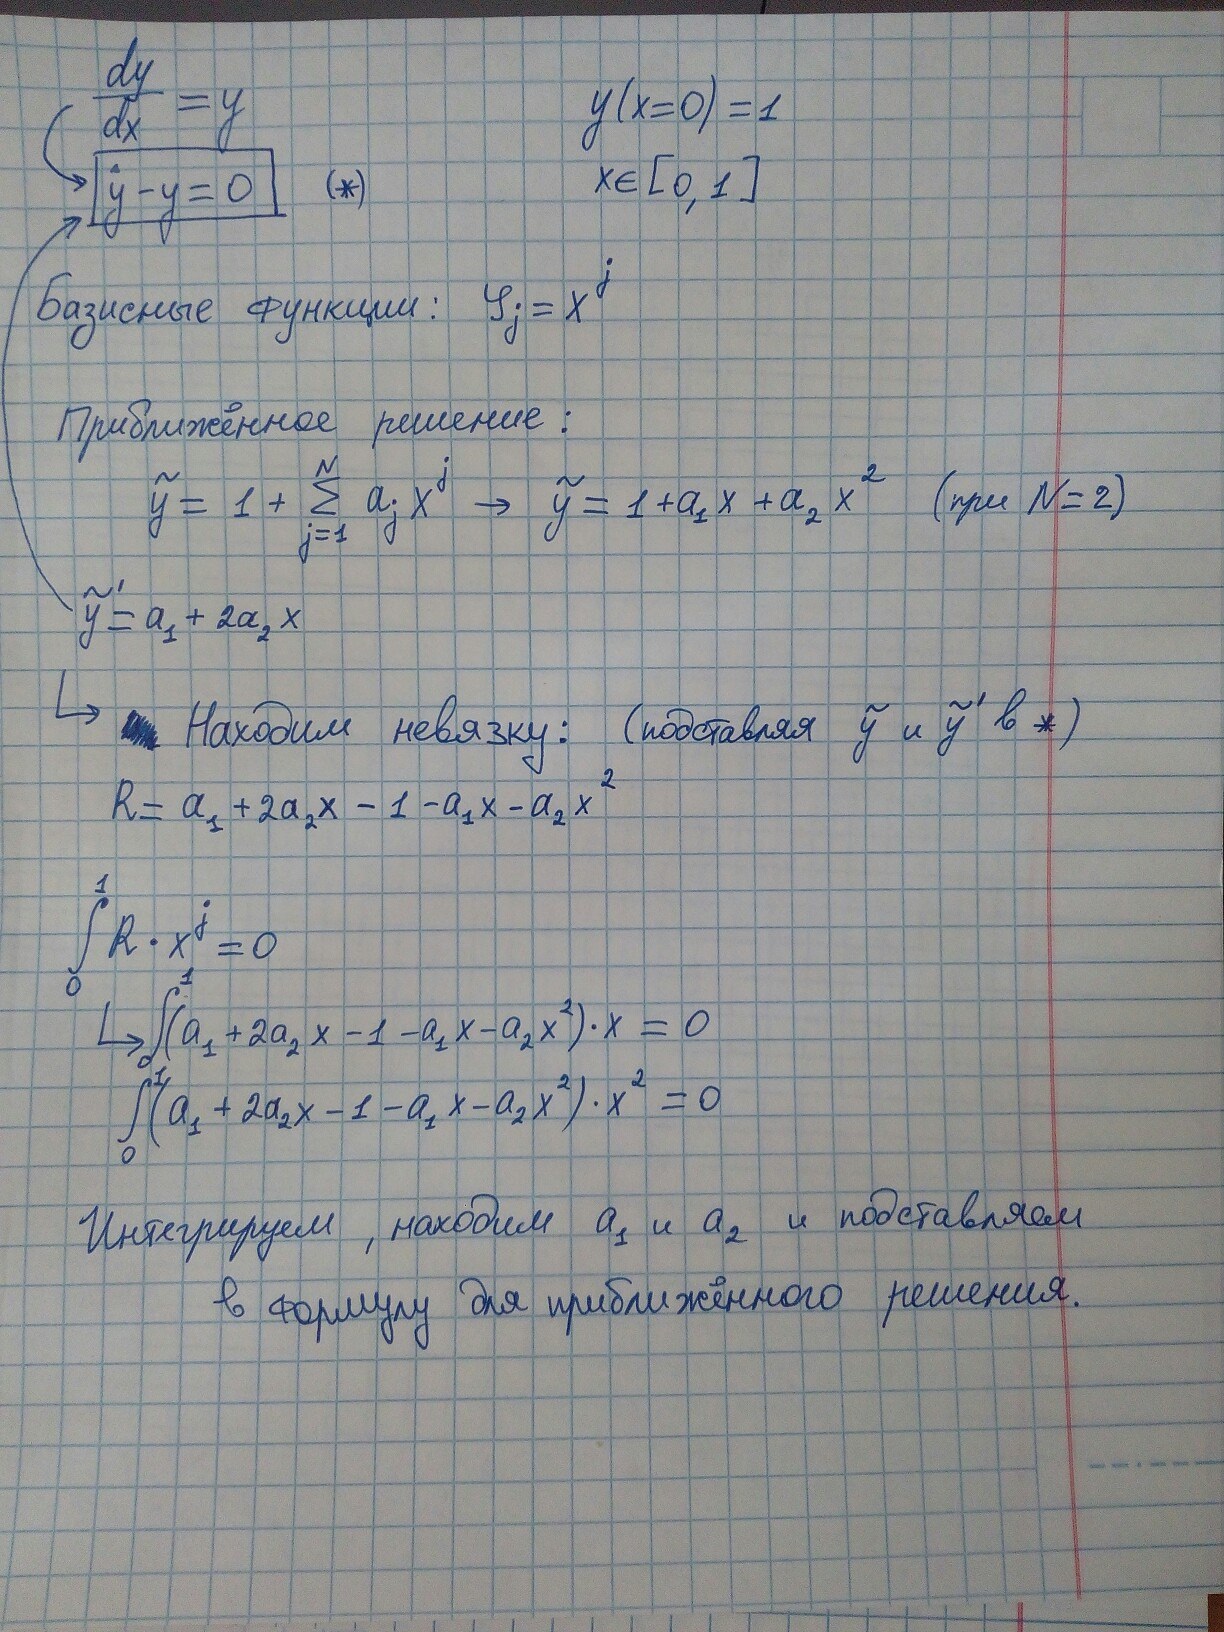 dy/dx = y y(x=0) = 1
ẏ - y = 0 (*) x∈[0, 1]
Базисные функции: φ_j = x^j
Приближённое решение:
ỹ = 1 + Σ_{j=1}^{N} a_j x^j → ỹ = 1 + a₁x + a₂x² (при N=2)
ỹ' = a₁ + 2a₂x
↳ Находим невязку: (подставляя ỹ и ỹ' в *)
R = a₁ + 2a₂x - 1 - a₁x - a₂x²
∫₀¹ R · x^j = 0
↳ ∫₀¹ (a₁ + 2a₂x - 1 - a₁x - a₂x²) · x = 0
∫₀¹ (a₁ + 2a₂x - 1 - a₁x - a₂x²) · x² = 0
Интегрируем, находим a₁ и a₂ и подставляем
в формулу для приближённого решения.